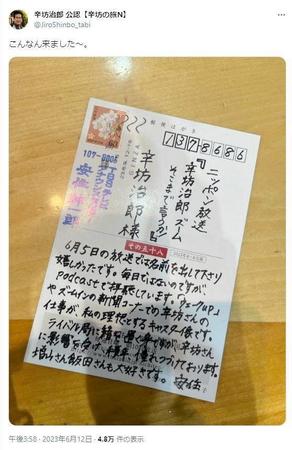 辛坊治郎 公認【辛坊の旅N】
@JiroShinbo_tabi
こんなん来ました〜。
郵便はがき
1378686
ニッポン放送
『辛坊治郎ズーム
そこまで言うか
辛坊治郎様
107-8006
TBSテレビ
アナウンス
安住紳一郎
その五十八
6月5日の放送では名前を出して下さり
嬉しかったです。毎日ではないのですが
Podcastで拝聴しています。『ウェークup』
やズームインの新聞コーナーでの辛坊さんの
仕事が、私の理想とするキャスター像です。
ライバル局に
に影響を受け
増山さん飯田さんも大好きです。安住
午後3:58 · 2023年6月12日 · 4.8万 件の表示